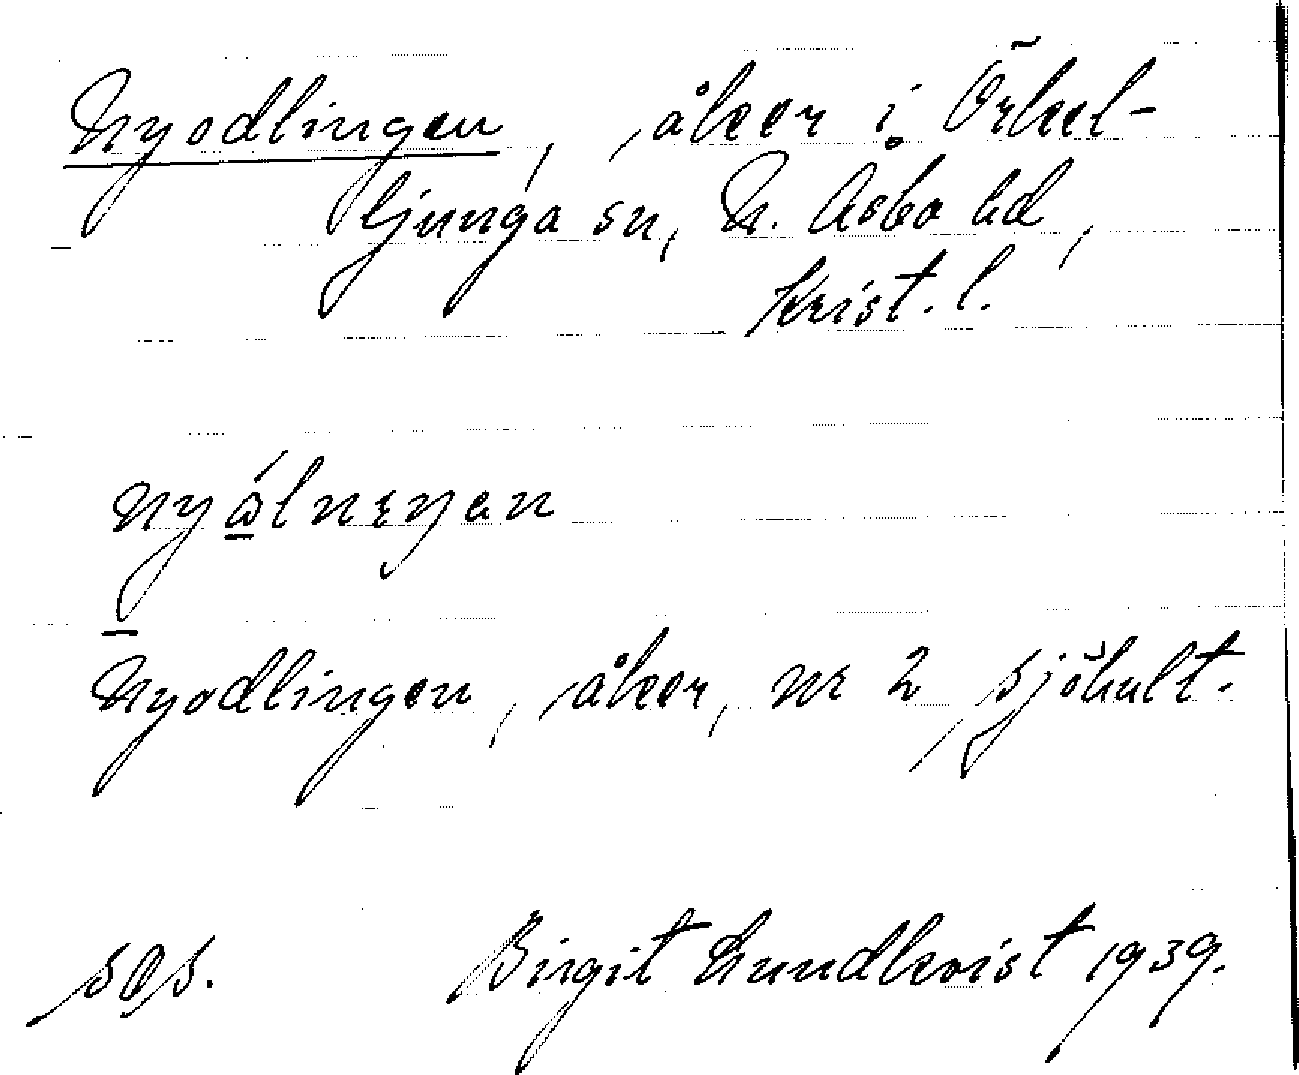 Nyodlingen, åker i Örkel-
ljunga sn, N. Åsbo hd,
Krist. l.
Nyodlingen, åker, nr 2 Sjöhult.
Birgit Lundkvist 1939.